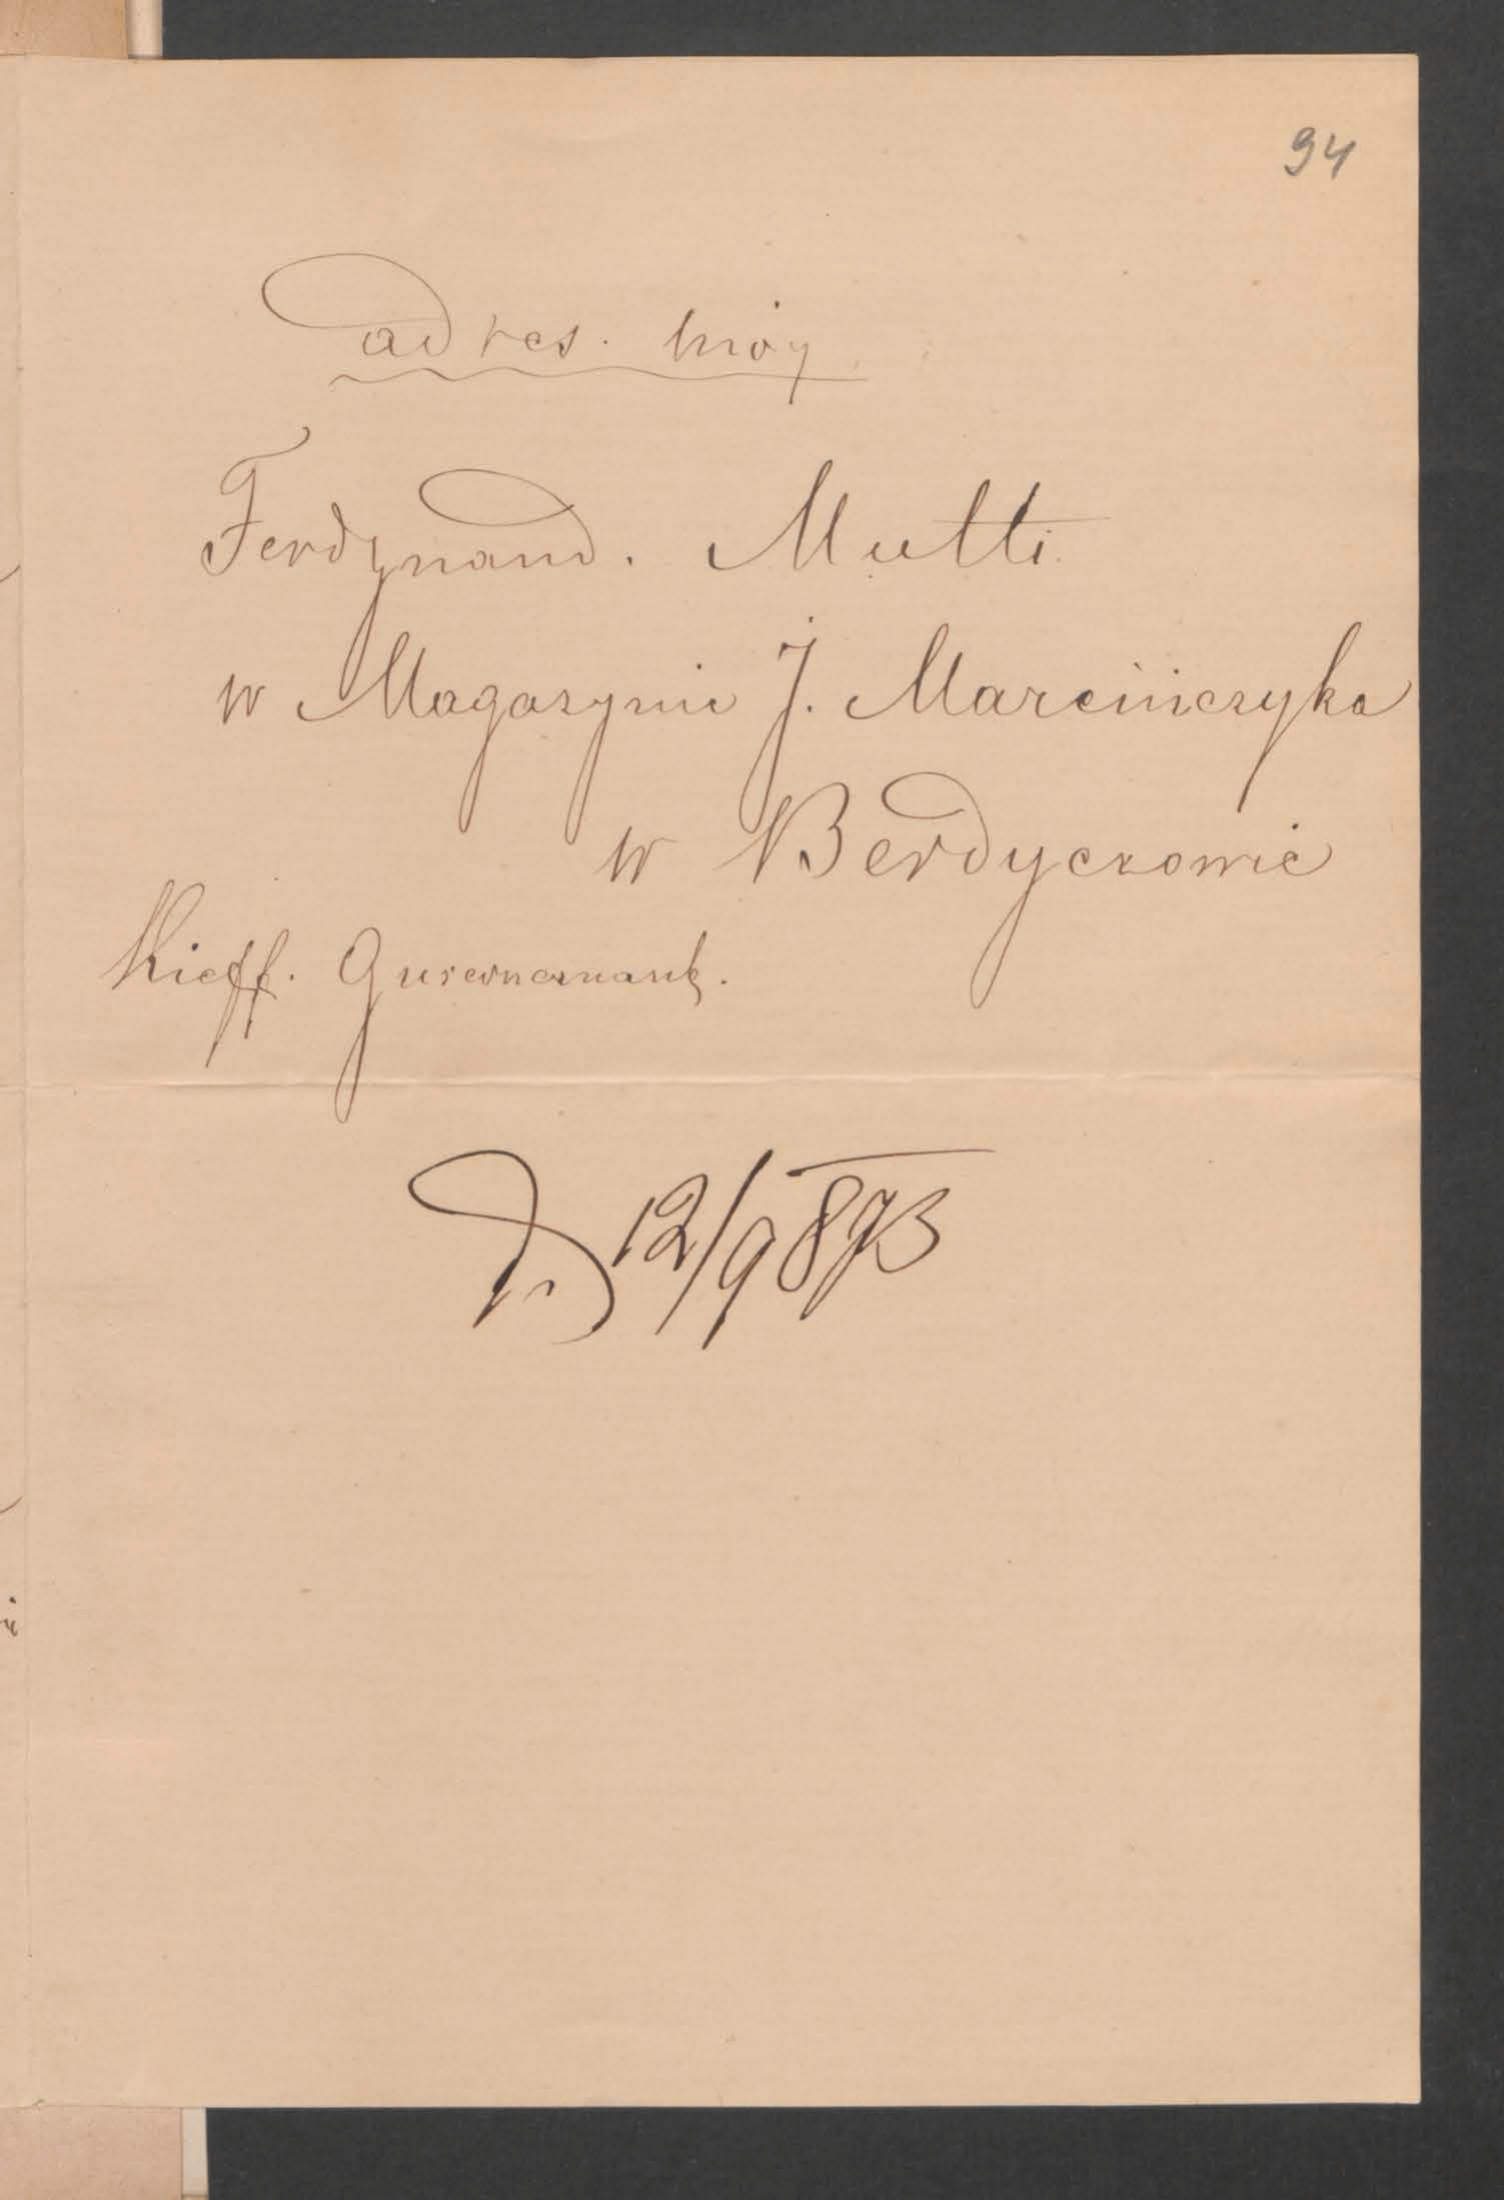 94
adres. móy
Ferdynand. Mutti
w Magazynie J. Marcińczyka
w Berdyczowie
Kieff. Guwernemank.
D. 12/9 893